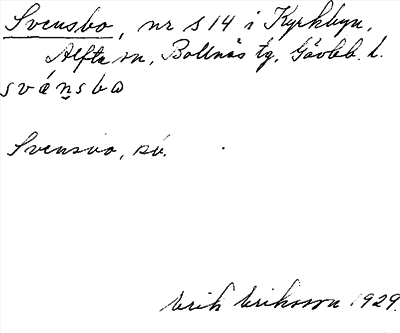 Svensbo, nr s 14 i Kyrkbyn,
Alfta sn, Bollnäs tg, Gävleb. l.
svánsba
Svensvo, sv.
Erik Eriksson 1929.